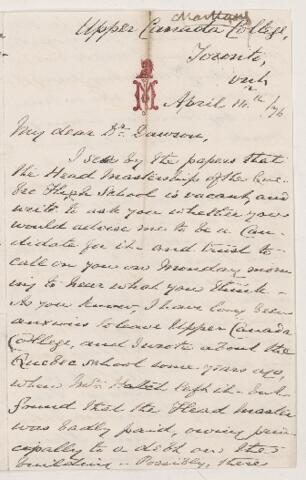 Martland
Upper Canada College,
Toronto,
Ont.
April 14th /76
M
My dear Dr. Dawson,
I see by the papers that
the Head Mastership of the Que-
bec High School is vacant, and
write to ask you whether you
would advise me to be a can-
didate for it - and trust to
call on you on Monday morn-
ing to hear what you think -
As you know, I have long been
anxious to leave Upper Canada
College, and I wrote about the
Quebec School some years ago,
when Mr. Hatch left it - but
found that the Head Master
was badly paid, owing prin-
cipally to a debt on the
building - Possibly, there